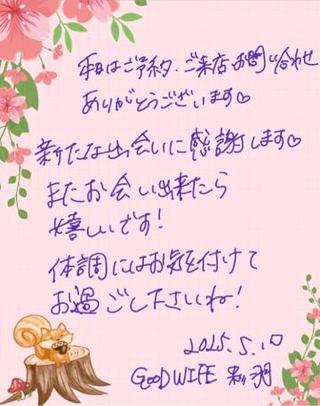 本日はご予約、ご来店、お問い合わせ
ありがとうございます♡
新たな出会いに感謝します♡
またお会い出来たら
嬉しいです!
体調にはお気を付けて
お過ごし下さいね!
2025.5.10
GOOD WIFE